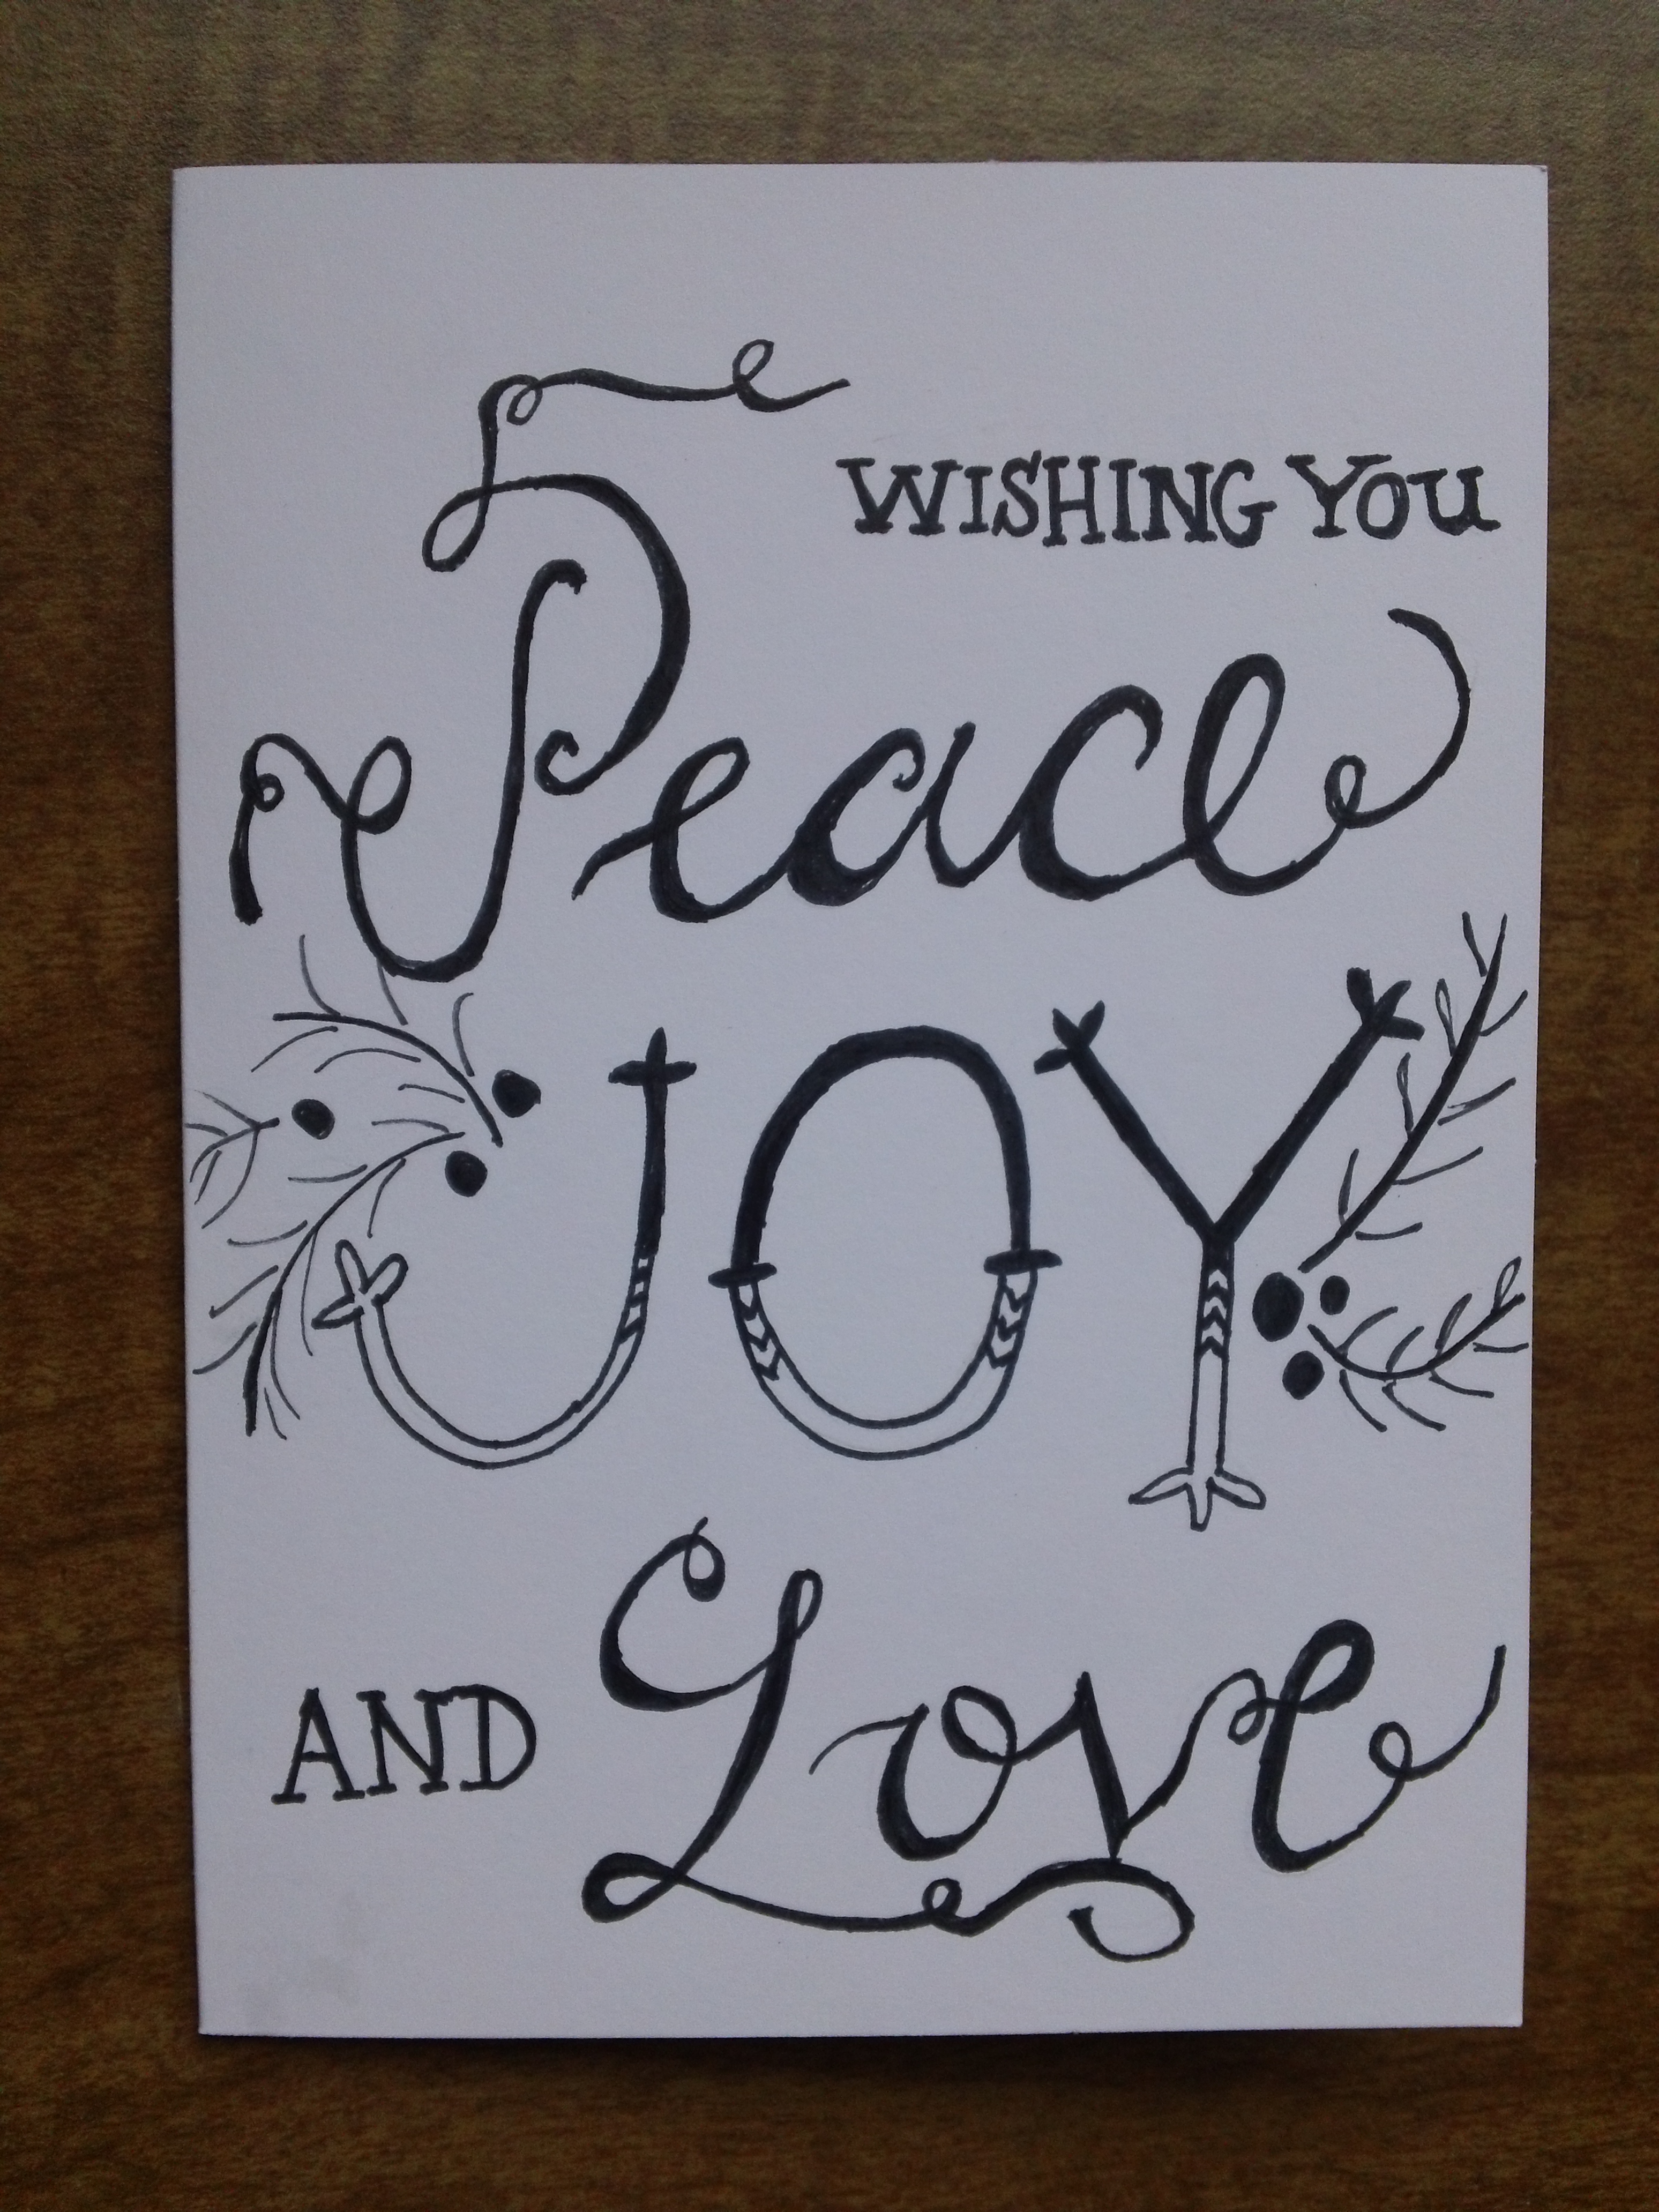 WISHING YOU
Peace
JOY
AND Love